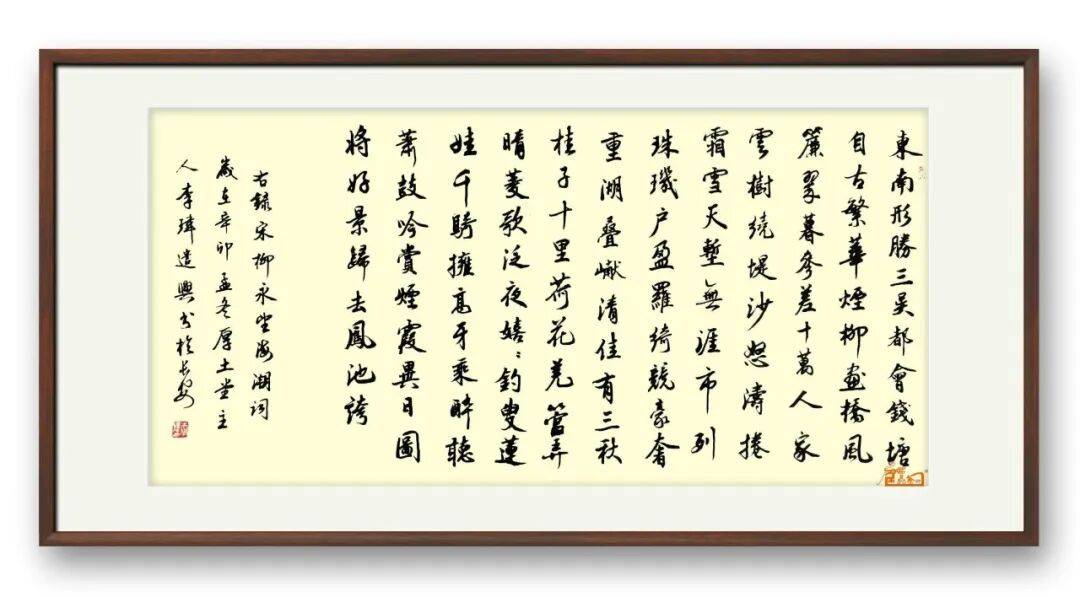 東南形勝三吴都會錢塘
自古繁華煙柳畫橋風
簾翠暮參差十萬人家
雲樹繞堤沙怒濤捲
霜雪天塹無涯市列
珠璣户盈羅綺競豪奢
重湖疊巘清佳有三秋
桂子十里荷花羌管弄
晴菱歌泛夜嬉〻釣叟蓮
娃千騎擁高牙乘醉聽
蕭鼓吟賞煙霞異日圖
將好景歸去鳳池誇
右録宋柳永望海潮词
歲在辛卯孟冬厚土堂主
人李瑋遣興书於長安